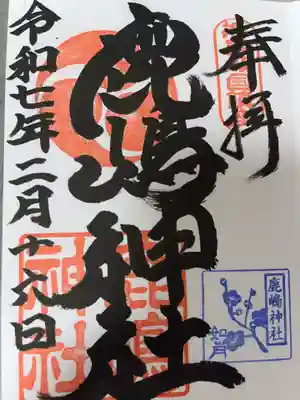 奉拝
鹿嶋神社
令和七年二月十六日
鹿嶋神社
如月